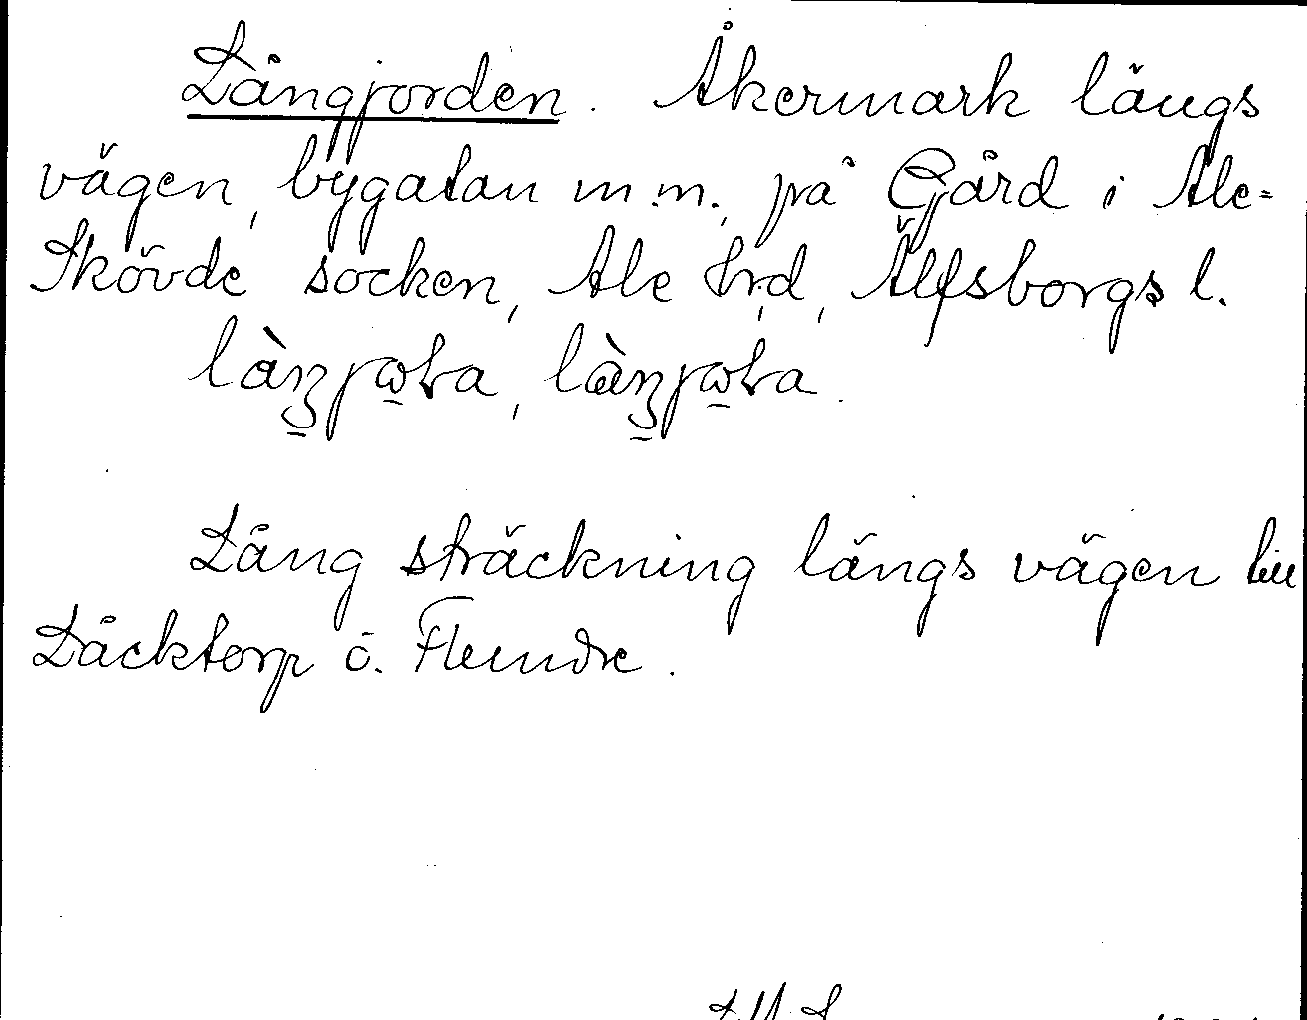 Långjorden. Åkermark längs
vägen, bygatan m.m., på Gård i Ale-
Skövde socken, Ale hrd, Älfsborgs l.
Lång sträckning längs vägen till
Låcktorp o. Flemdre.